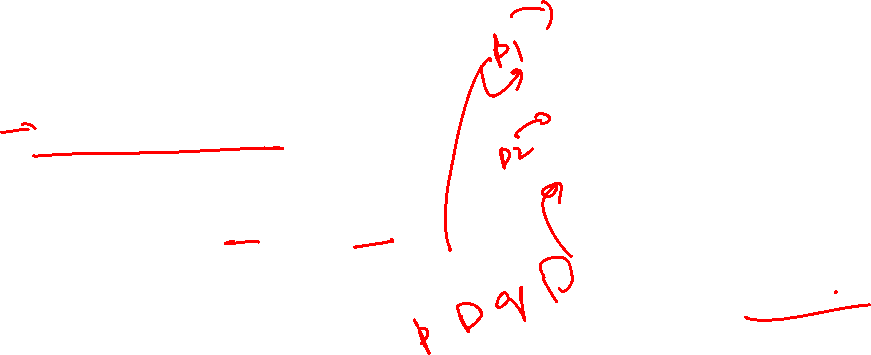 p1
p2
p D q D